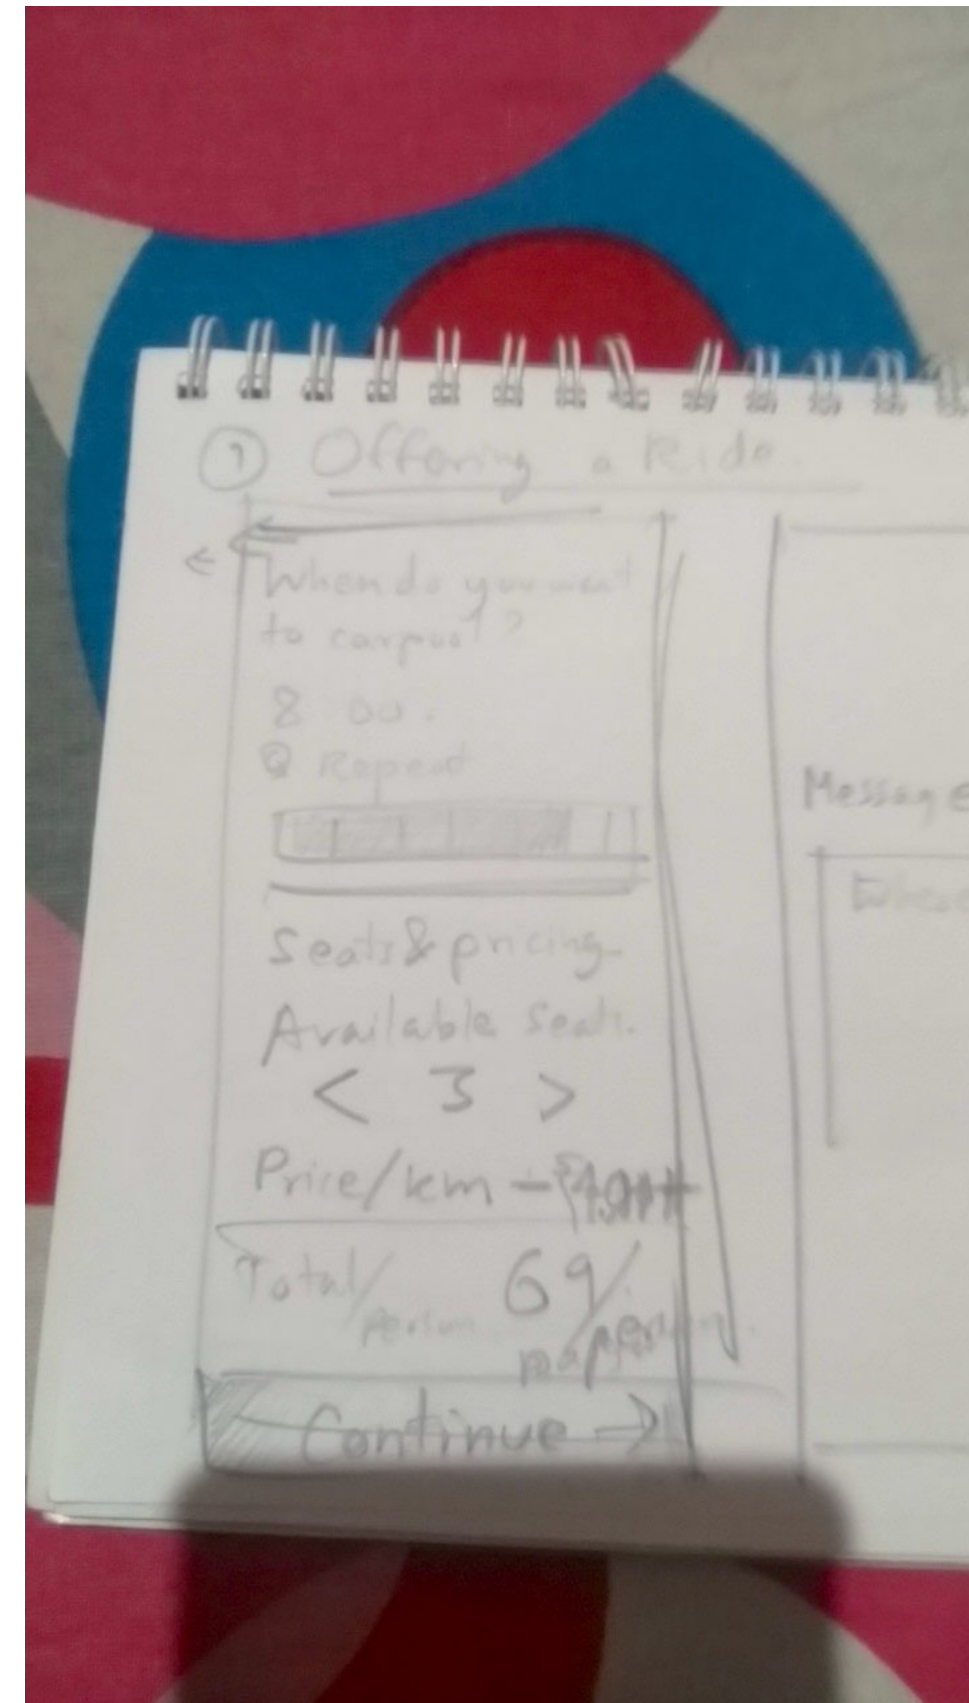 1 Offering a Ride.
←
When do you want
to carpool?
8 00.
Repeat
Seats & pricing
Available Seats.
< 3 >
Price/km -
Total/
person
69/
person
Continue →
Message